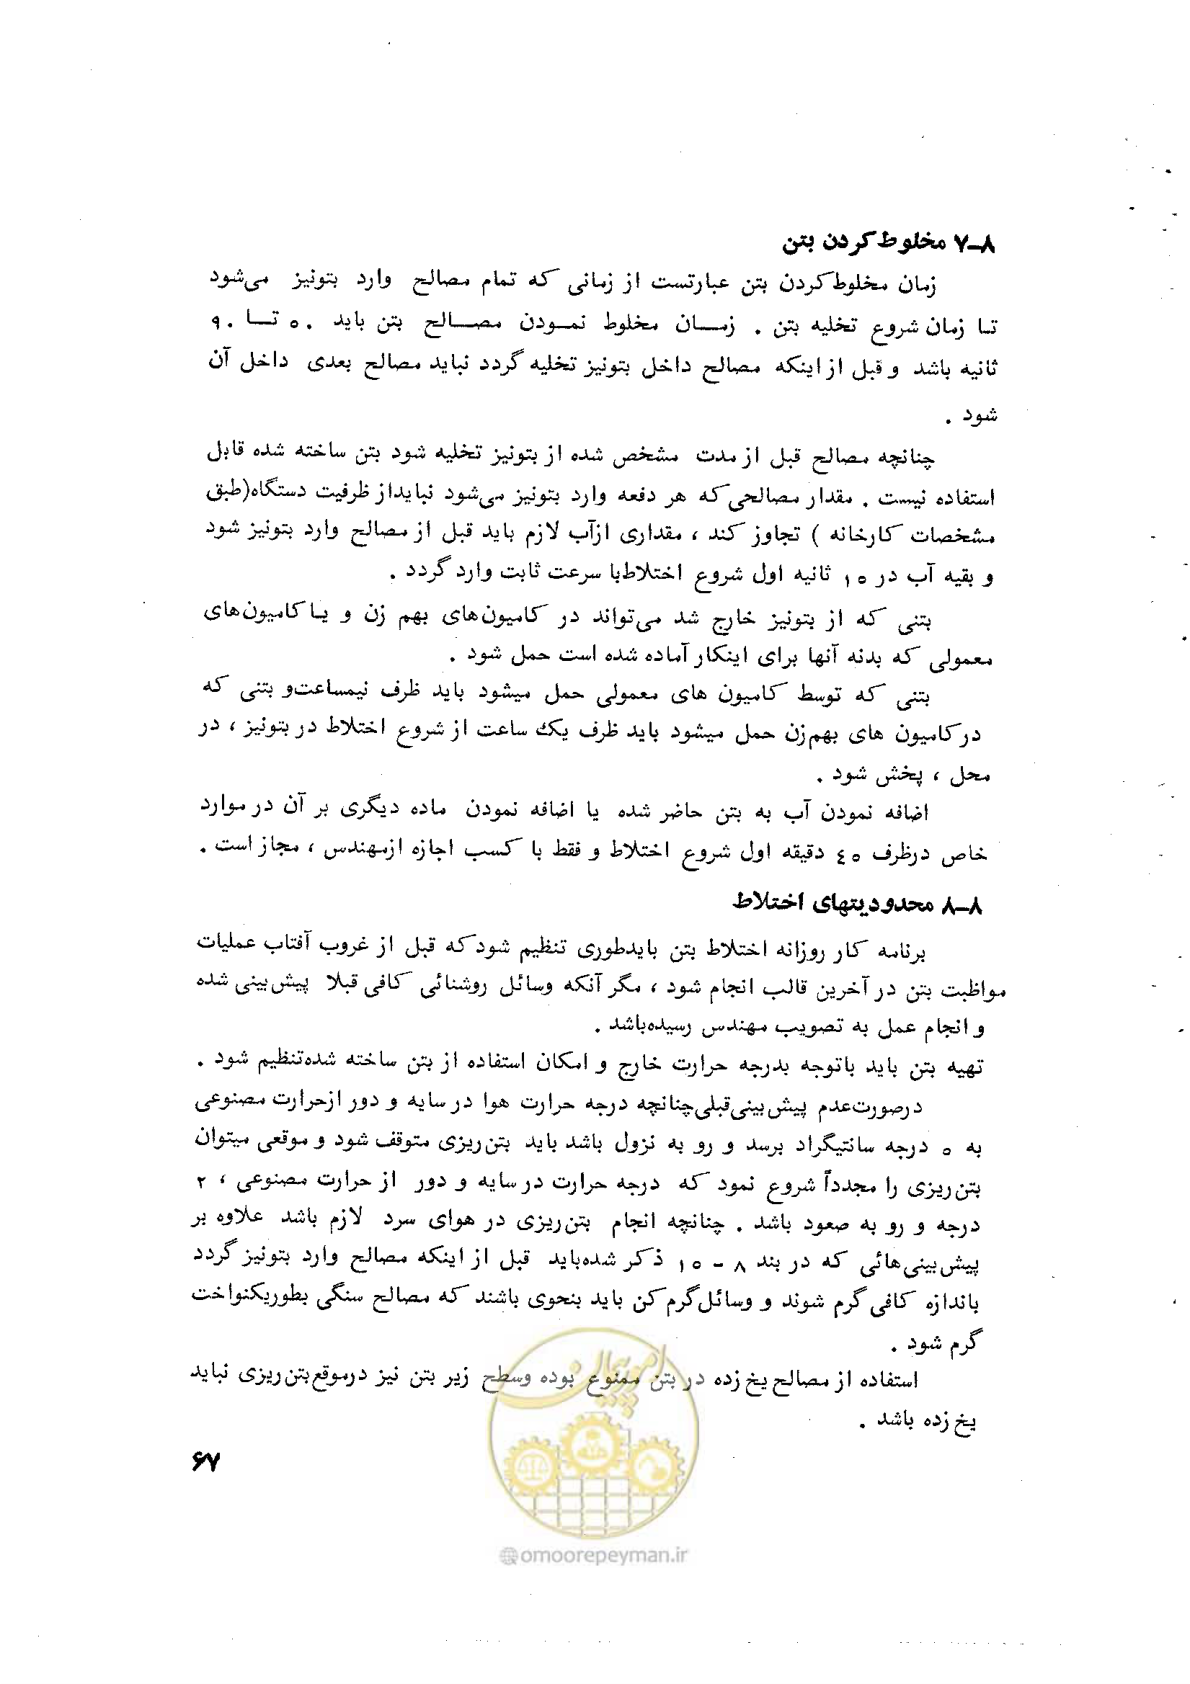 ۸–۷ مخلوط کردن بتن
زمان مخلوط کردن بتن عبارتست از زمانی که تمام مصالح وارد بتونیز می‌شود
تا زمان شروع تخلیه بتن . زمان مخلوط نمودن مصالح بتن باید ۵۰ تا ۹۰
ثانیه باشد و قبل از اینکه مصالح داخل بتونیز تخلیه گردد نباید مصالح بعدی داخل آن
شود .
چنانچه مصالح قبل از مدت مشخص شده از بتونیز تخلیه شود بتن ساخته شده قابل
استفاده نیست . مقدار مصالحی که هر دفعه وارد بتونیز می‌شود نباید از ظرفیت دستگاه (طبق
مشخصات کارخانه ) تجاوز کند ، مقداری از آب لازم باید قبل از مصالح وارد بتونیز شود
و بقیه آب در ۱۵ ثانیه اول شروع اختلاط با سرعت ثابت وارد گردد .
بتنی که از بتونیز خارج شد می‌تواند در کامیون‌های بهم زن و یا کامیون‌های
معمولی که بدنه آنها برای اینکار آماده شده است حمل شود .
بتنی که توسط کامیون های معمولی حمل میشود باید ظرف نیمساعت و بتنی که
در کامیون های بهم‌زن حمل میشود باید ظرف یک ساعت از شروع اختلاط در بتونیز ، در
محل ، پخش شود .
اضافه نمودن آب به بتن حاضر شده یا اضافه نمودن ماده دیگری بر آن در موارد
خاص در ظرف ۴۵ دقیقه اول شروع اختلاط و فقط با کسب اجازه از مهندس ، مجاز است .
۸–۸ محدودیتهای اختلاط
برنامه کار روزانه اختلاط بتن باید طوری تنظیم شود که قبل از غروب آفتاب عملیات
مواظبت بتن در آخرین قالب انجام شود ، مگر آنکه وسائل روشنائی کافی قبلا پیش‌بینی شده
و انجام عمل به تصویب مهندس رسیده باشد .
تهیه بتن باید با توجه بدرجه حرارت خارج و امکان استفاده از بتن ساخته شده تنظیم شود .
در صورت عدم پیش‌بینی قبلی چنانچه درجه حرارت هوا در سایه و دور از حرارت مصنوعی
به ۵ درجه سانتیگراد برسد و رو به نزول باشد باید بتن‌ریزی متوقف شود و موقعی میتوان
بتن‌ریزی را مجدداً شروع نمود که درجه حرارت در سایه و دور از حرارت مصنوعی ، ۲
درجه و رو به صعود باشد . چنانچه انجام بتن‌ریزی در هوای سرد لازم باشد علاوه بر
پیش‌بینی‌هائی که در بند ۸ – ۱۵ ذکر شده باید قبل از اینکه مصالح وارد بتونیز گردد
باندازه کافی گرم شوند و وسائل گرم کن باید بنحوی باشند که مصالح سنگی بطور یکنواخت
گرم شود .
استفاده از مصالح یخ زده در بتن ممنوع بوده وسطح زیر بتن نیز در موقع بتن‌ریزی نباید
یخ زده باشد .
۶۷
امور پیمان
@omoorepeyman.ir